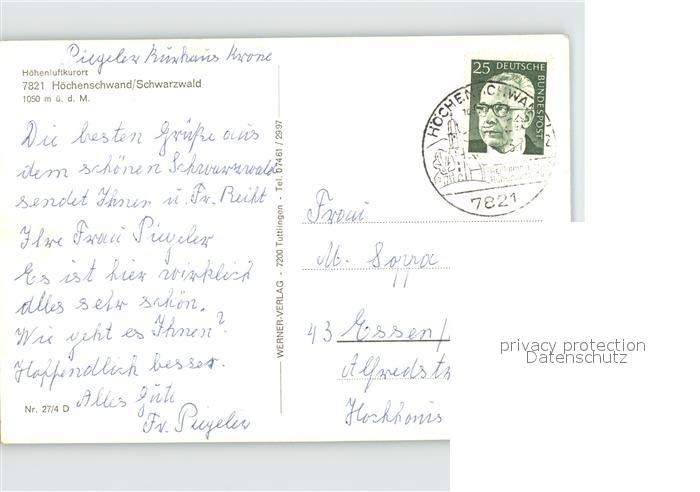 Piegeler Kurhaus Krone
Höhenluftkurort
7821 Höchenschwand/Schwarzwald
1050 m ü. d. M.
Die besten Grüße aus
dem schönen Schwarzwald
sendet Ihnen u. Fr. Reiht
Ihre Frau Piegeler
Es ist hier wirklich
alles sehr schön.
Wie geht es Ihnen?
Hoffendlich besser.
Alles Gute
Fr. Piegeler
Nr. 27/4 D
WERNER-VERLAG - 7200 Tuttlingen - Tel. 07461 / 2997
25 DEUTSCHE
BUNDESPOST
HÖCHENSCHWAND
7821
Frau
M. Soppa
43 Essen/
Alfredstr
Hochhaus
privacy protection
Datenschutz